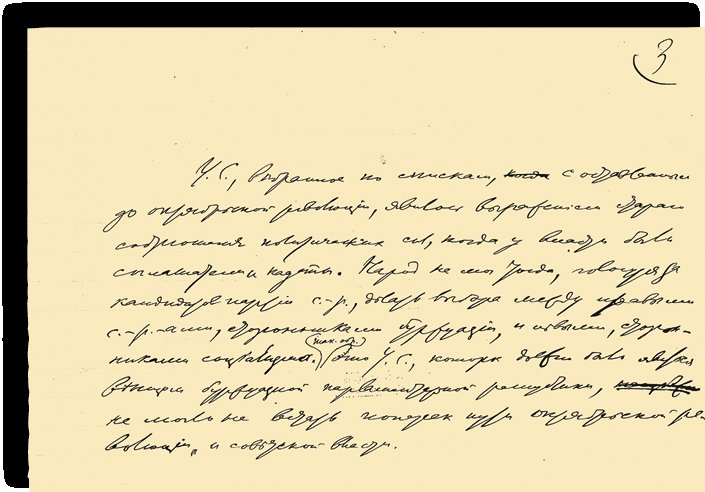 3
У. С., выбранное по спискам, когда с оставленным
до октябрьской революции, явилось выражением старого
соотношения политических сил, когда у власти были
соглашатели и кадеты. Народ не мог тогда, голосуя за
кандидатов партии с.-р., делать выбора между правыми
с.-р.-ами, сторонниками буржуазии, и левыми, сторон-
никами социализма. (так. обр.) Это У. С., которое должно было явиться
венцом буржуазной парламентарной республики,
не могло не встать поперек пути октябрьской ре-
волюции и советской власти.